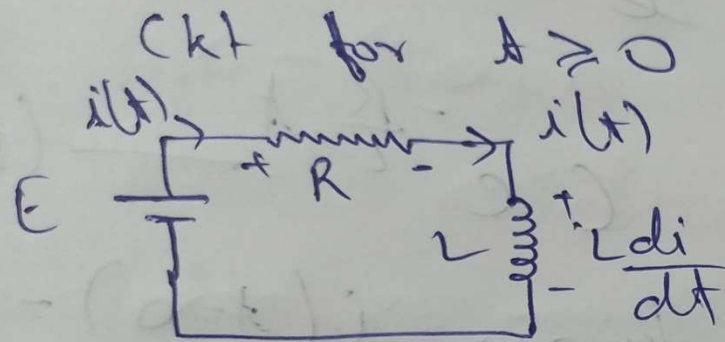 Ckt for t ≥ 0
i(t) i(t)
+ R -
E
L + L di/dt -